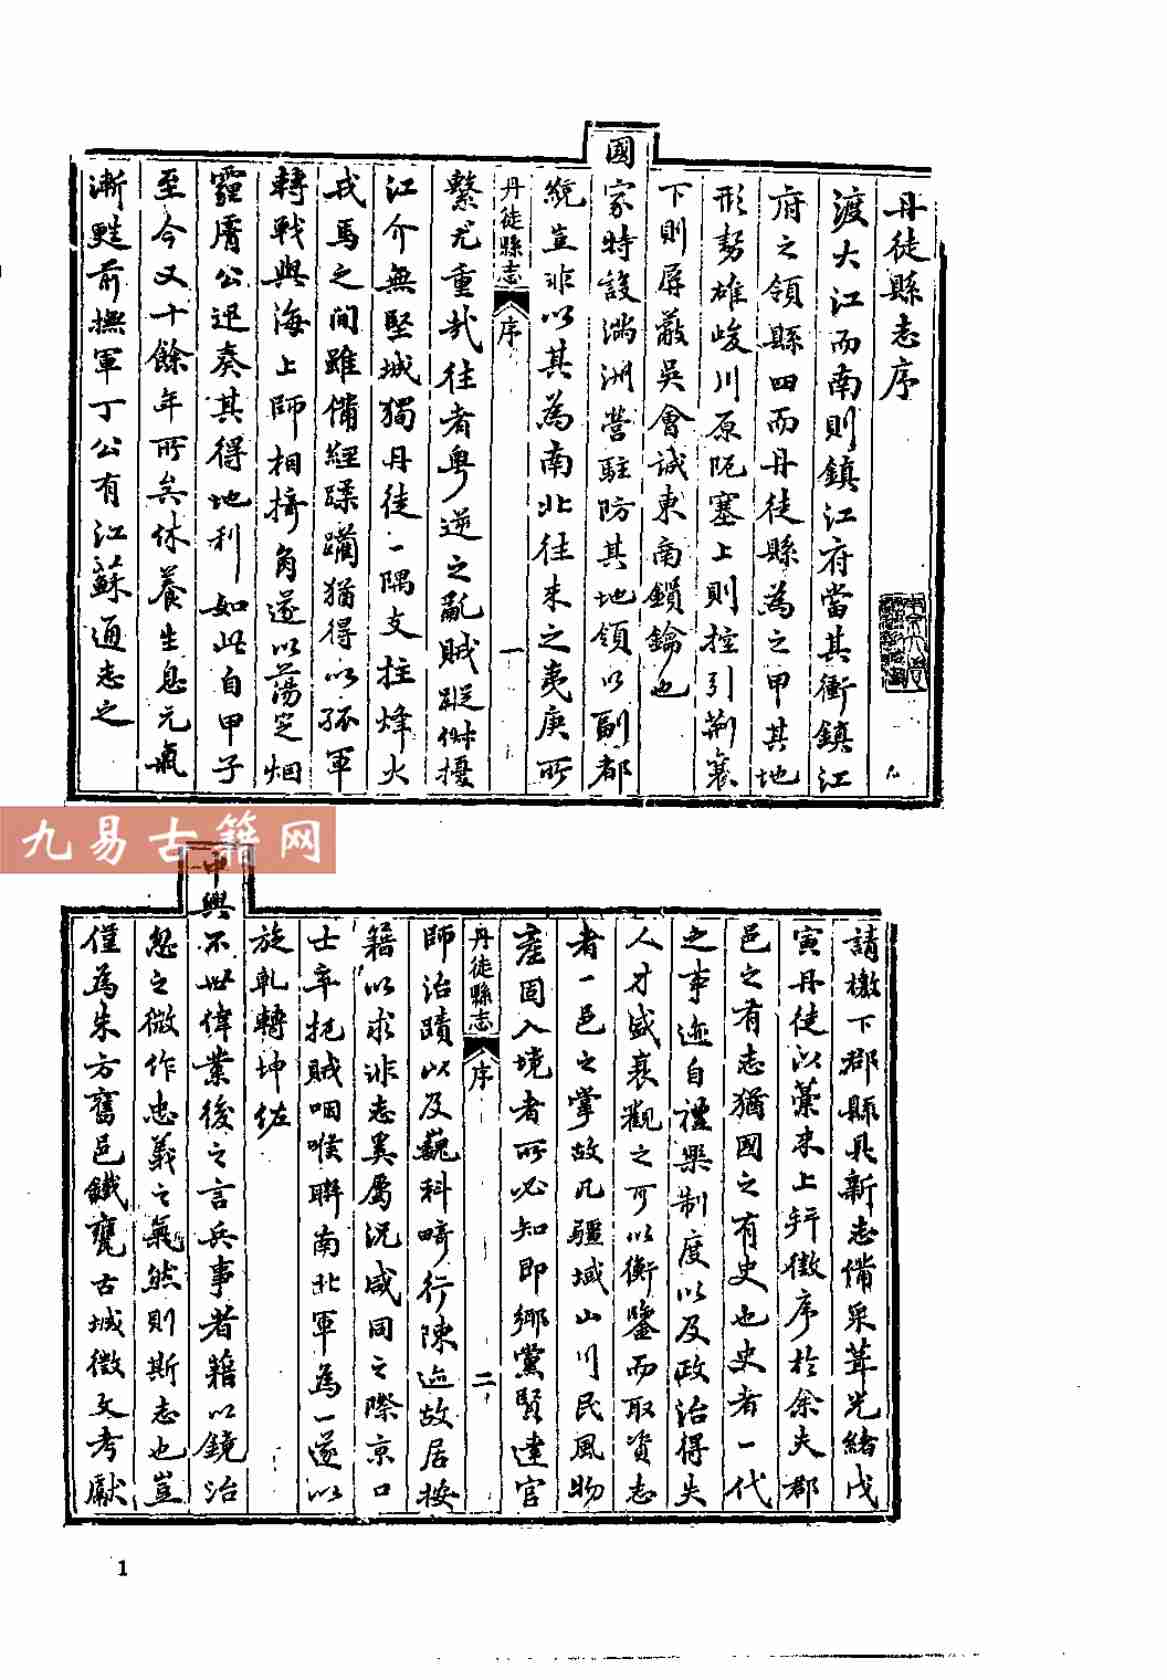 丹徒縣志序
渡大江而南則鎮江府當其衝鎮江
府之領縣四而丹徒縣為之甲其地
形勢雄峻川原阨塞上則控引荊襄
下則屏蔽吳會誠東南鎖鑰也
國家特設滿洲營駐防其地領以副都
統豈非以其為南北往來之夷庚所
丹徒縣志
序
一
繫尤重哉往者粵逆之亂賊蹤俶擾
江介無堅城獨丹徒一隅支拄烽火
戎馬之間雖備經蹂躪猶得以孤軍
轉戰與海上師相掎角遂以蕩定烟
霾膚公迅奏其得地利如此自甲子
至今又十餘年所矣休養生息元氣
漸甦前撫軍丁公有江蘇通志之
九易古籍网
請檄下郡縣具新志備采葺光緒戊
寅丹徒以藁來上并徵序於余夫郡
邑之有志猶國之有史也史者一代
之事迹自禮樂制度以及政治得失
人才盛衰觀之可以衡鑒而取資志
者一邑之掌故凡疆域山川民風物
產固入境者所必知即鄉黨賢達官
丹徒縣志
序
二
師治蹟以及巍科畸行陳迹故居按
籍以求非志奚屬況咸同之際京口
士卒扼賊咽喉聯南北軍為一遂以
旋乾轉坤佐
中興不世偉業後之言兵事者籍以鏡治
忽之微作忠義之氣然則斯志也豈
僅為朱方舊邑鐵甕古城徵文考獻
1